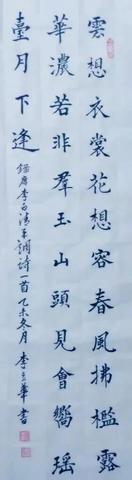 雲想衣裳花想容春風拂檻露
華濃若非羣玉山頭見會嚮瑤
臺月下逢
錄唐李白清平調詩一首乙未冬月李立華書